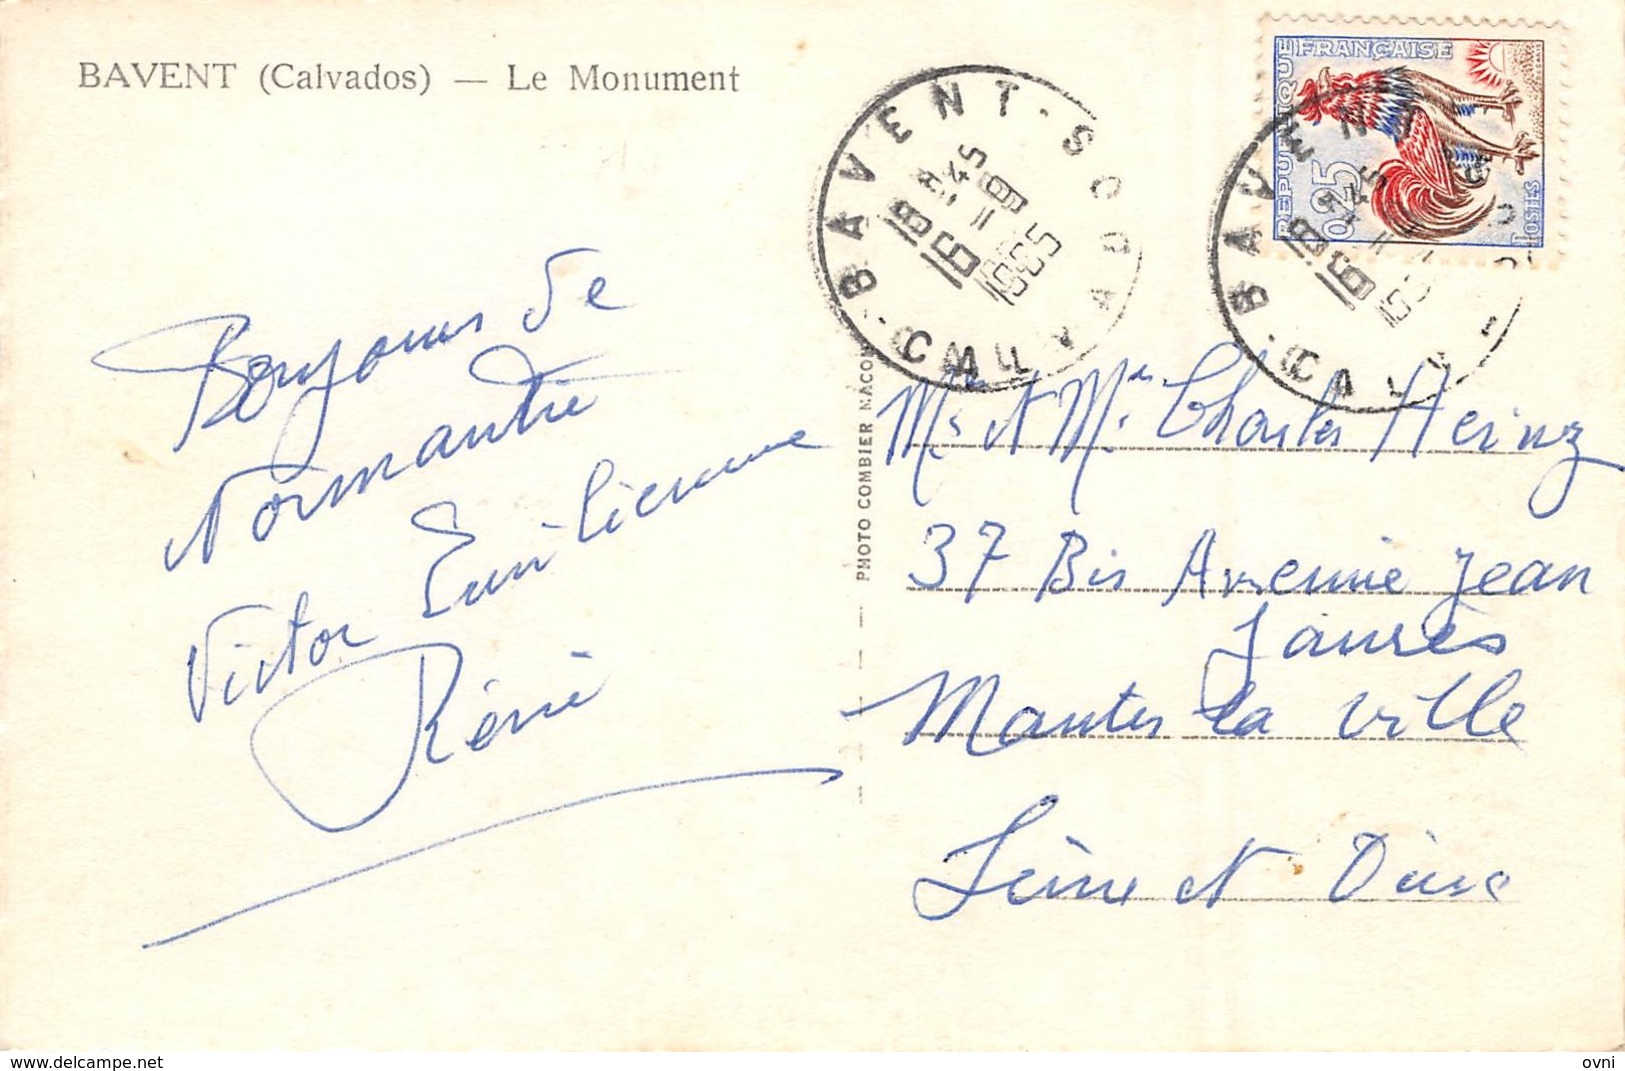 BAVENT (Calvados) — Le Monument
Bonjour de
Normandie
Victor Emilienne
Réné
PHOTO COMBIER MACON
REPUBLIQUE FRANÇAISE
0,25
POSTES
BAVENT
CALVADOS
18 H 45
16 - 9
1965
Mr et Me Charles Heinz
37 Bis Avenue Jean
Jaurès
Mantes la Ville
Seine et Oise
www.delcampe.net
ovni